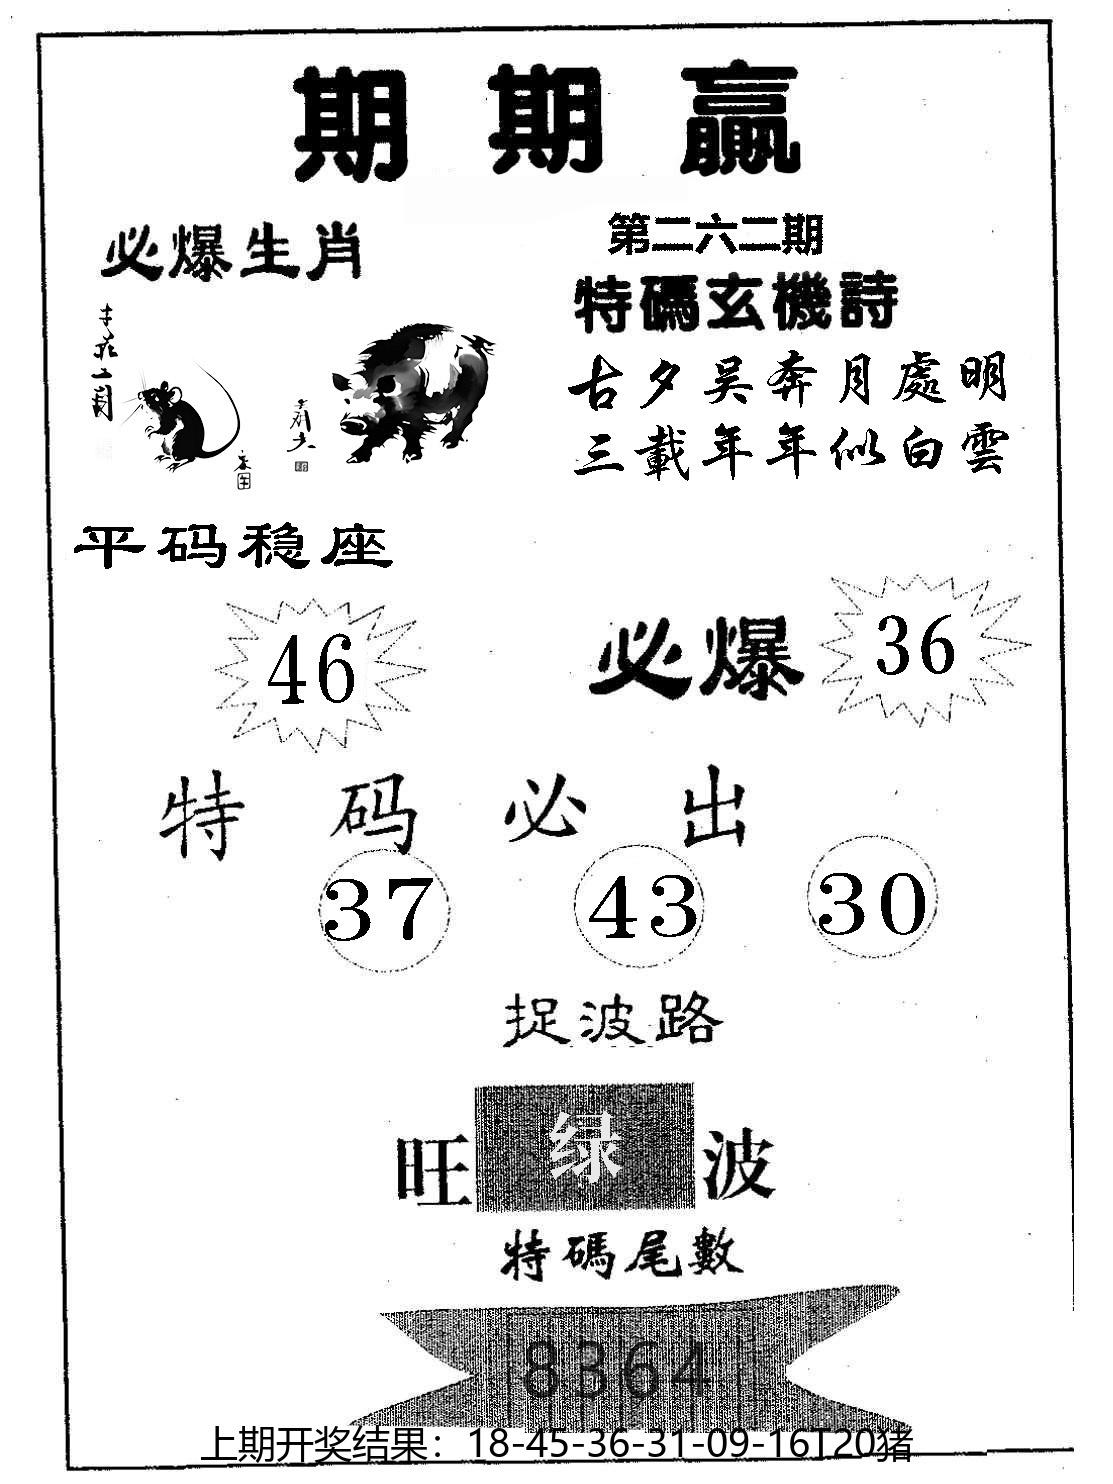 期期贏
必爆生肖
第二六二期
特碼玄機詩
古夕吴奔月處明
三載年年似白雲
平码稳座
46
必爆
36
特码必出
37 43 30
捉波路
旺绿波
特碼尾數
8364
上期开奖结果：18-45-36-31-09-16T20猪